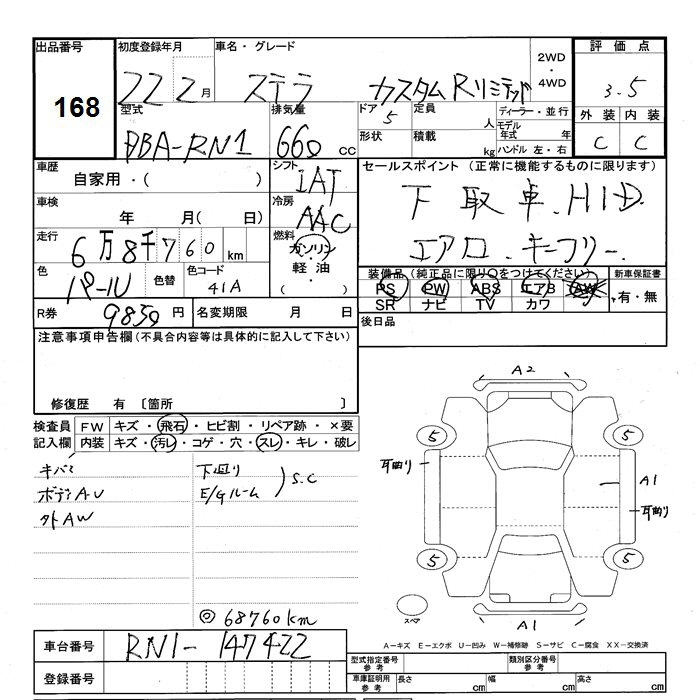 出品番号
168
初度登録年月
22 2月
車名・グレード
ステラ カスタムRリミテッド
2WD
・
4WD
評価点
3.5
型式
DBA-RN1
排気量
660cc
ドア
5
定員
人
形状
積載
kg
ディーラー・並行
モデル年式 年
ハンドル 左・右
外装 内装
C C
車歴
自家用・( )
シフト
IAT
セールスポイント (正常に機能するものに限ります)
下取車.HID.
エアロ.キーフリー.
車検
年 月( 日)
冷房
AAC
走行
6万8千760km
燃料
ガソリン
軽油
・
色
パール
色替
色コード
41A
装備品(純正品に限り○をつけてください)
PS PW ABS エアB AW
SR ナビ TV カワ
新車保証書
有・無
R券
9850円
名変期限 月 日
後日品
注意事項申告欄(不具合内容等は具体的に記入して下さい)
修復歴 有 〔箇所 〕
検査員記入欄
FW キズ・飛石・ヒビ割・リペア跡・×要
内装 キズ・汚レ・コゲ・穴・スレ・キレ・破レ
キバミ
ボデーAU
外AW
下回り
E/Gルーム
)S.C
◎68760km
A2
5 5
耳曲り
A1
耳曲り
5 5
スペア
A1
A-キズ E-エクボ U-凹み W-補修跡 S-サビ C-腐食 XX-交換済
車台番号
RN1-147422
登録番号
型式指定番号
参考
類別区分番号
参考
車庫証明用
参考
長さ cm
幅 cm
高さ cm